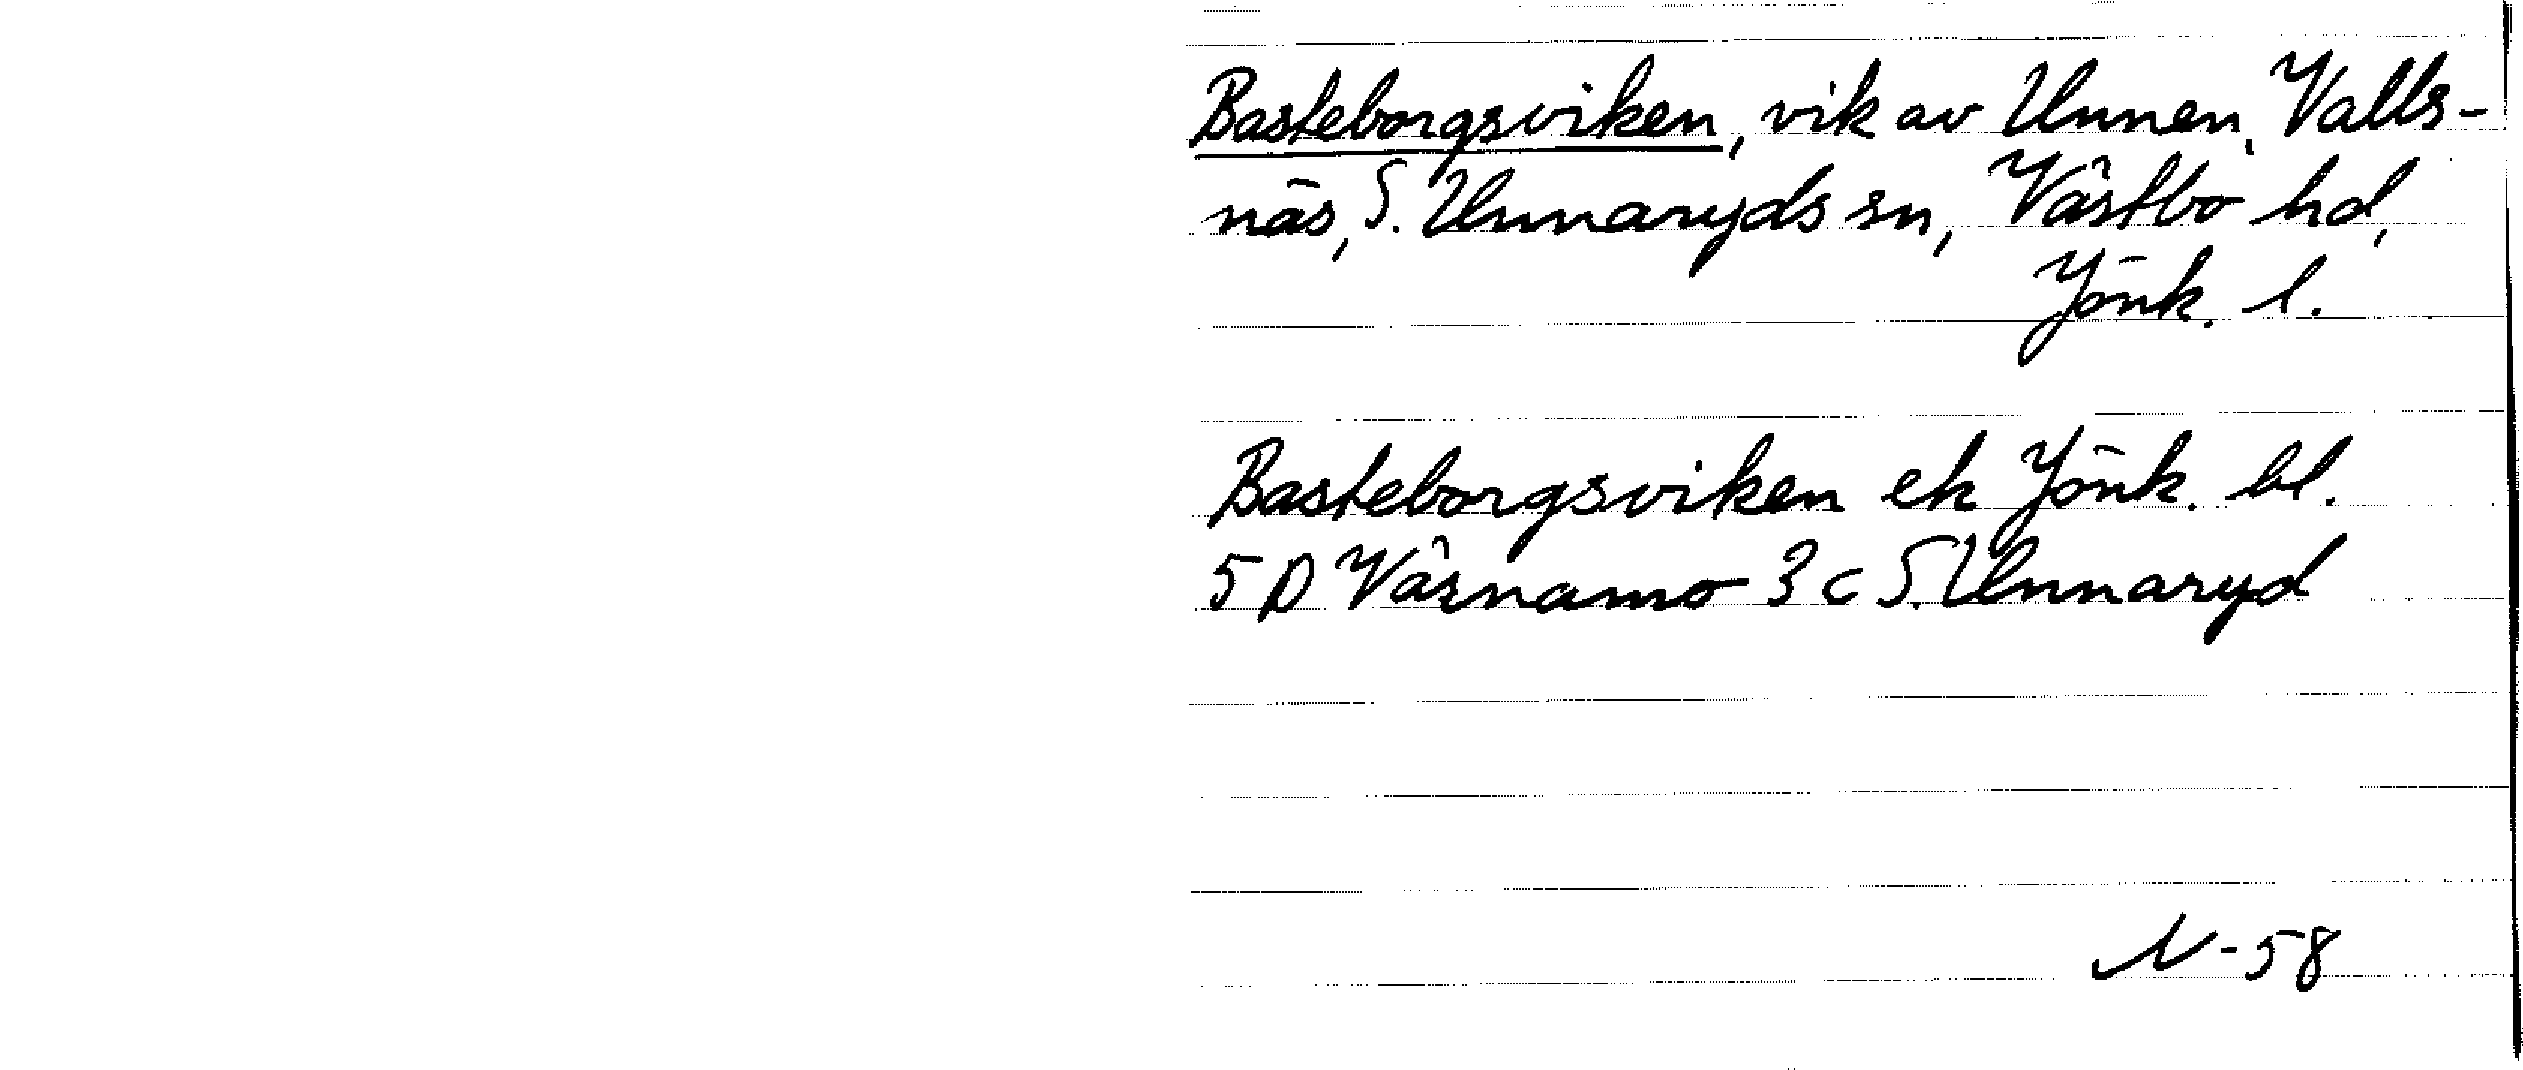 Basteborgsviken, vik av Unnen, Valls-
näs, S. Unnaryds sn, Västbo hd,
Jönk. l.
Basteborgsviken ek Jönk. bl.
5 D Värnamo 3 c S. Unnaryd
N-58